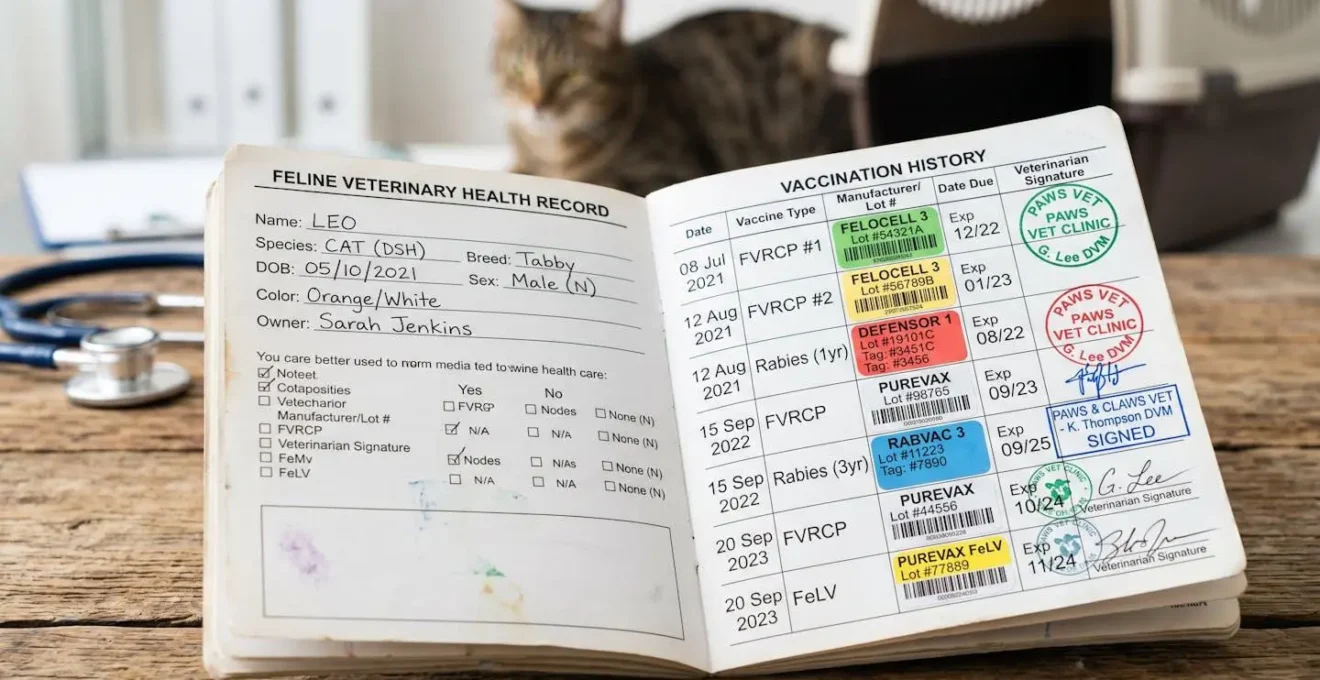 FELINE VETERINARY HEALTH RECORD
Name: LEO
Species: CAT (DSH) Breed: Tabby
DOB: 05/10/2021 Sex: Male (N)
Color: Orange/White
Owner: Sarah Jenkins
You care better used to media ted to wine health care:
Noteet
Cotaposities Yes No
Vetecharior FVRCP Nodes None (N)
Manufacturer/Lot #
FVRCP N/A N/A None (N)
Veterinarian Signature
FeMv Nodes N/As None (N)
FeLV N/A N/A None (N)
VACCINATION HISTORY
Date Vaccine Type Manufacturer/ Lot # Date Due Veterinarian Signature
08 Jul 2021 FVRCP #1 FELOCELL 3 Lot #54321A Exp 12/22
PAWS VET
PAWS
VET CLINIC
G. Lee DVM
12 Aug 2021 FVRCP #2 FELOCELL 3 Lot #56789B Exp 01/23
12 Aug 2021 Rabies (1yr) DEFENSOR 1 Lot #19101C Tag: #3451C Tag: #3456 Exp 08/22
PAWS VET
PAWS
VET CLINIC
G. Lee DVM
15 Sep 2022 FVRCP PUREVAX Lot #98765 Exp 09/23
15 Sep 2022 Rabies (3yr) RABVAC 3 Lot #11223 Tag: #7890 Exp 09/25
PAWS & CLAWS VET
- K. Thompson DVM
SIGNED
20 Sep 2023 FVRCP PUREVAX Lot #44556 Exp 10/24
G. Lee
Veterinarian Signature
20 Sep 2023 FeLV PUREVAX FeLV Lot #77889 Exp 11/24
Veterinarian Signature